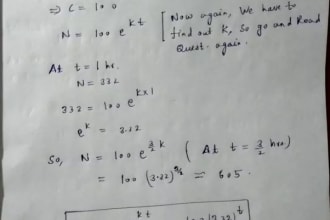 ⇒ C = 100
N = 100 e^{kt} [ Now again, We have to
find out k, So go and Read
Quest. again.
At t = 1 hr.
N = 332
332 = 100 e^{k×1}
e^k = 3.32
So, N = 100 e^{3/2 k} ( At t = 3/2 hrs)
= 100 (3.32)^{3/2} ≈ 605.
kt
(3.32)^t